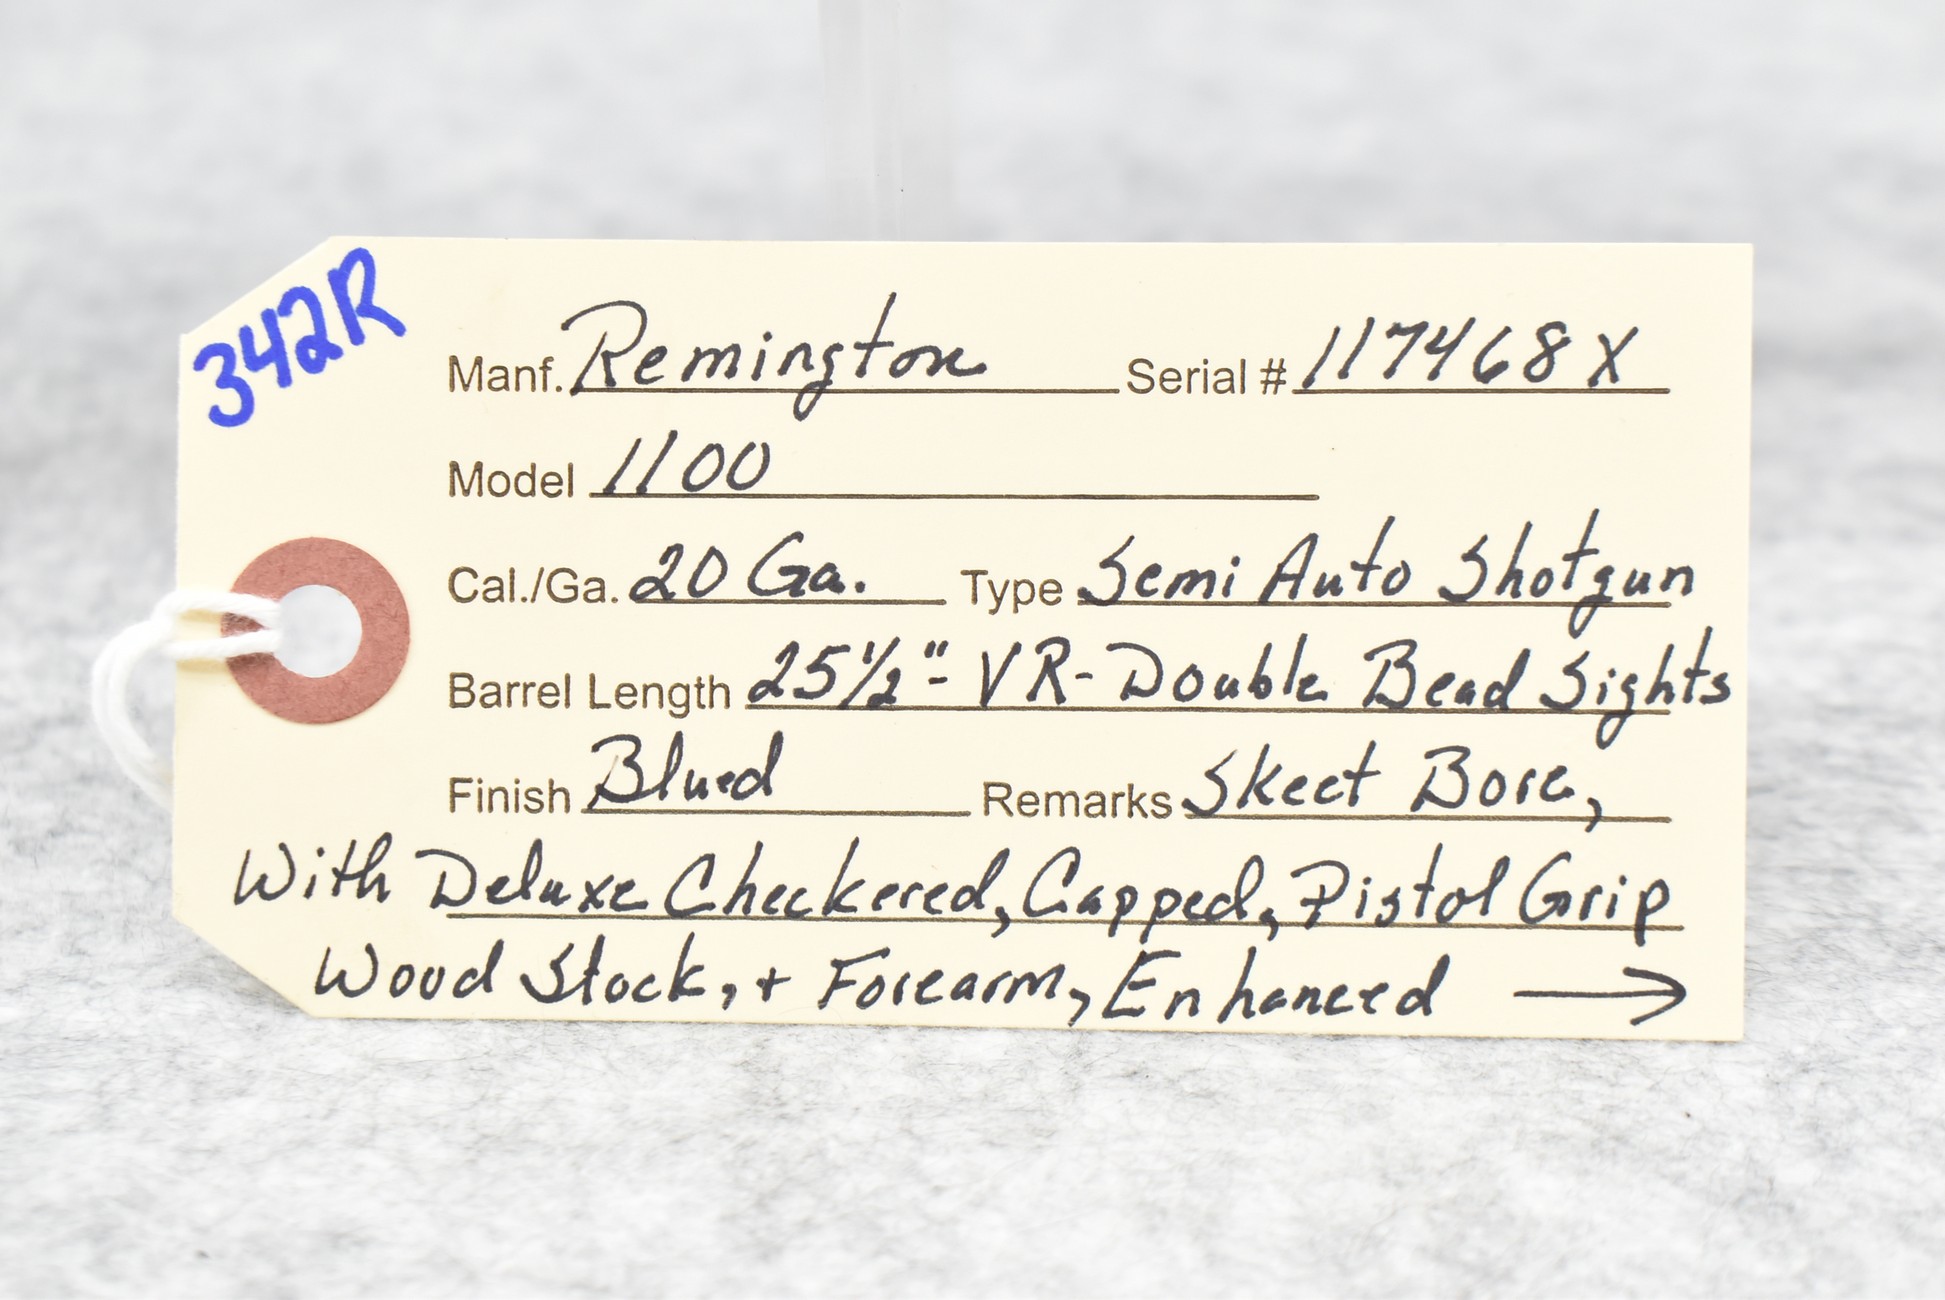 342R
Manf. Remington Serial # 117468X
Model 1100
Cal./Ga. 20 Ga. Type Semi Auto Shotgun
Barrel Length 25 1/2" - VR - Double Bead Sights
Finish Blued Remarks Skeet Bore,
With Deluxe Checkered, Capped, Pistol Grip
Wood Stock, + Forearm, Enhanced →